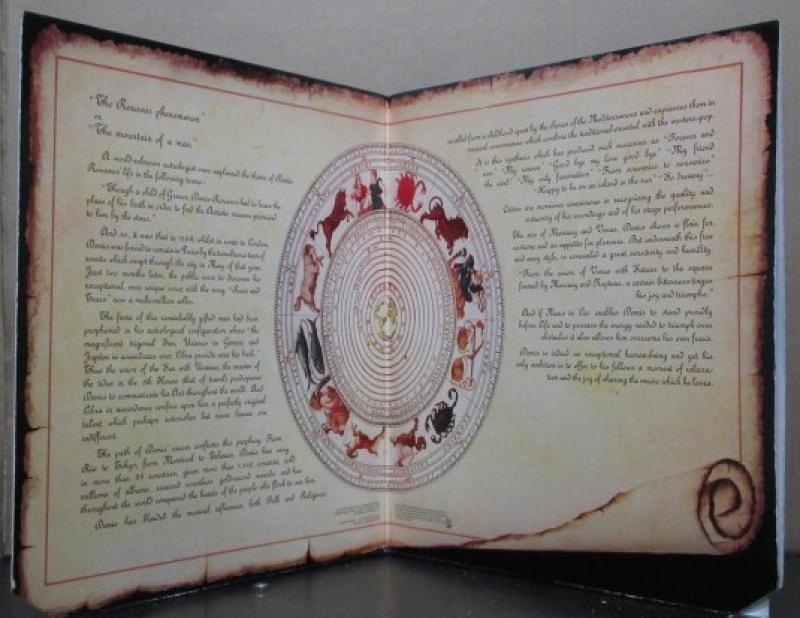 "The Roussos phenomenon"
or
"The mountain of a man"
A world-renown astrologist once explained the theme of Demis
Roussos' life in the following terms:
"Though a child of Greece, Demis Roussos had to leave the
place of his birth in order to find the Artistic success promised
to him by the stars."
And so, it was that in 1968, whilst en route to London,
Demis was forced to remain in Paris by the tumultuous turn of
events which swept through the city in May of that year.
Just two months later, the public was to discover his
exceptional, even unique voice with the song "Rain and
Tears" now a multi-million seller.
The fame of this remarkably gifted man had been
prophesied in his astrological configuration where "the
magnificent trigonal Sun, Uranus in Gemini and
Jupiter in ascendance over Libra preside over his birth."
Thus the union of the Sun with Uranus, the master of
the tides in the 5th House (that of travel) predisposes
Demis to communicate his Art throughout the world. And
Libra in ascendance confers upon him a perfectly original
talent which perhaps astonishes but never leaves one
indifferent.
The path of Demis' career confirms this prophecy. From
Rio to Tokyo, from Montreal to Teheran, Demis has sung
in more than 35 countries, given more than concerts, sold
millions of albums, received countless gold records and has
throughout the world conquered the hearts of the people who flock to see him.
Demis has blended the musical influences, both Folk and Religious
recalled from a childhood spent by the shores of the Mediterranean and expresses them in
musical consonances which combine the traditional oriental with the western pop.
It is this synthesis which has produced such successes as "Forever and
ever" "My reason" "Good bye my love good bye" "My friend
the wind" "My only fascination" "From souvenirs to souvenirs"
"Happy to be on an island in the sun" "So dreamy"...
Critics are moreover unanimous in recognising the quality and
intensity of his recordings and of his stage performances.
The son of Mercury and Venus, Demis shows a flair for
costume and an appetite for pleasure. But underneath this free
and easy style, is concealed a great sensitivity and humility.
"From the union of Venus with Saturn to the square
formed by Mercury and Neptune, a certain bitterness tinges
his joy and triumphs."
And if Mars in Leo enables Demis to stand proudly
before life and to possess the energy needed to triumph over
obstacles it also allows him overcome his own fears.
Demis is indeed an exceptional human-being and yet his
only ambition is to offer to his fellows a moment of relaxa-
tion and the joy of sharing the music which he loves.